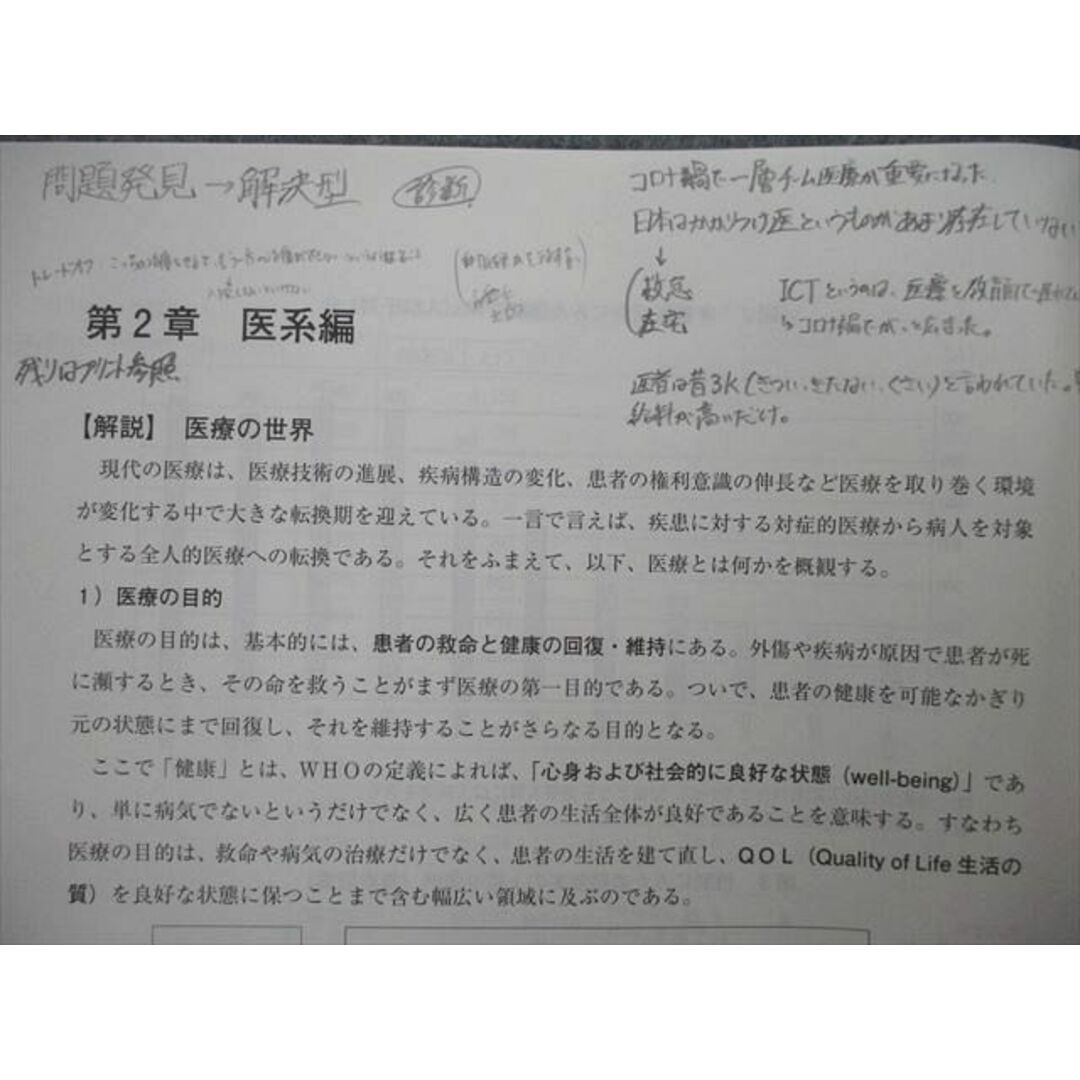 問題発見→解決型
診断
コロナ禍で一層チーム医療が重要になった
日本はかかりつけ医というものがあまり存在していない
↓
救急
在宅
ICTというのは、医療と
コロナ禍で
医者は昔3K(きつい、きたない、くさい)と言われていた。
給料が高いだけ。
トレードオフ
第2章 医系編
残りはプリント参照
【解説】 医療の世界
現代の医療は、医療技術の進展、疾病構造の変化、患者の権利意識の伸長など医療を取り巻く環境
が変化する中で大きな転換期を迎えている。一言で言えば、疾患に対する対症的医療から病人を対象
とする全人的医療への転換である。それをふまえて、以下、医療とは何かを概観する。
1)医療の目的
医療の目的は、基本的には、患者の救命と健康の回復・維持にある。外傷や疾病が原因で患者が死
に瀕するとき、その命を救うことがまず医療の第一目的である。ついで、患者の健康を可能なかぎり
元の状態にまで回復し、それを維持することがさらなる目的となる。
ここで「健康」とは、WHOの定義によれば、「心身および社会的に良好な状態(well-being)」であ
り、単に病気でないというだけでなく、広く患者の生活全体が良好であることを意味する。すなわち
医療の目的は、救命や病気の治療だけでなく、患者の生活を建て直し、QOL(Quality of Life 生活の
質)を良好な状態に保つことまで含む幅広い領域に及ぶのである。